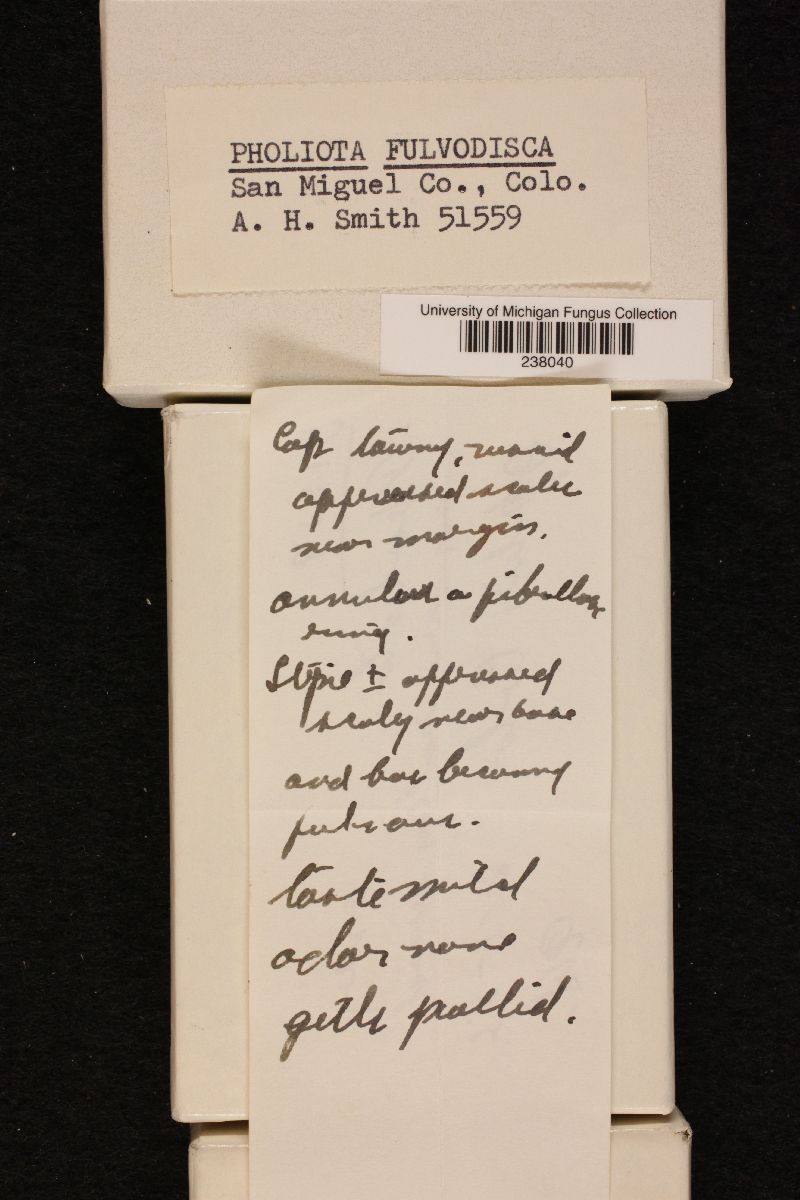 PHOLIOTA FULVODISCA
San Miguel Co., Colo.
A. H. Smith 51559
University of Michigan Fungus Collection
238040
Cap tawny,
appressed scales
near margin.
annulus a fibrillose
ring.
Stipe ± appressed
scaly near base
and base becoming
fulvous.
taste mild
odor none
gills pallid.